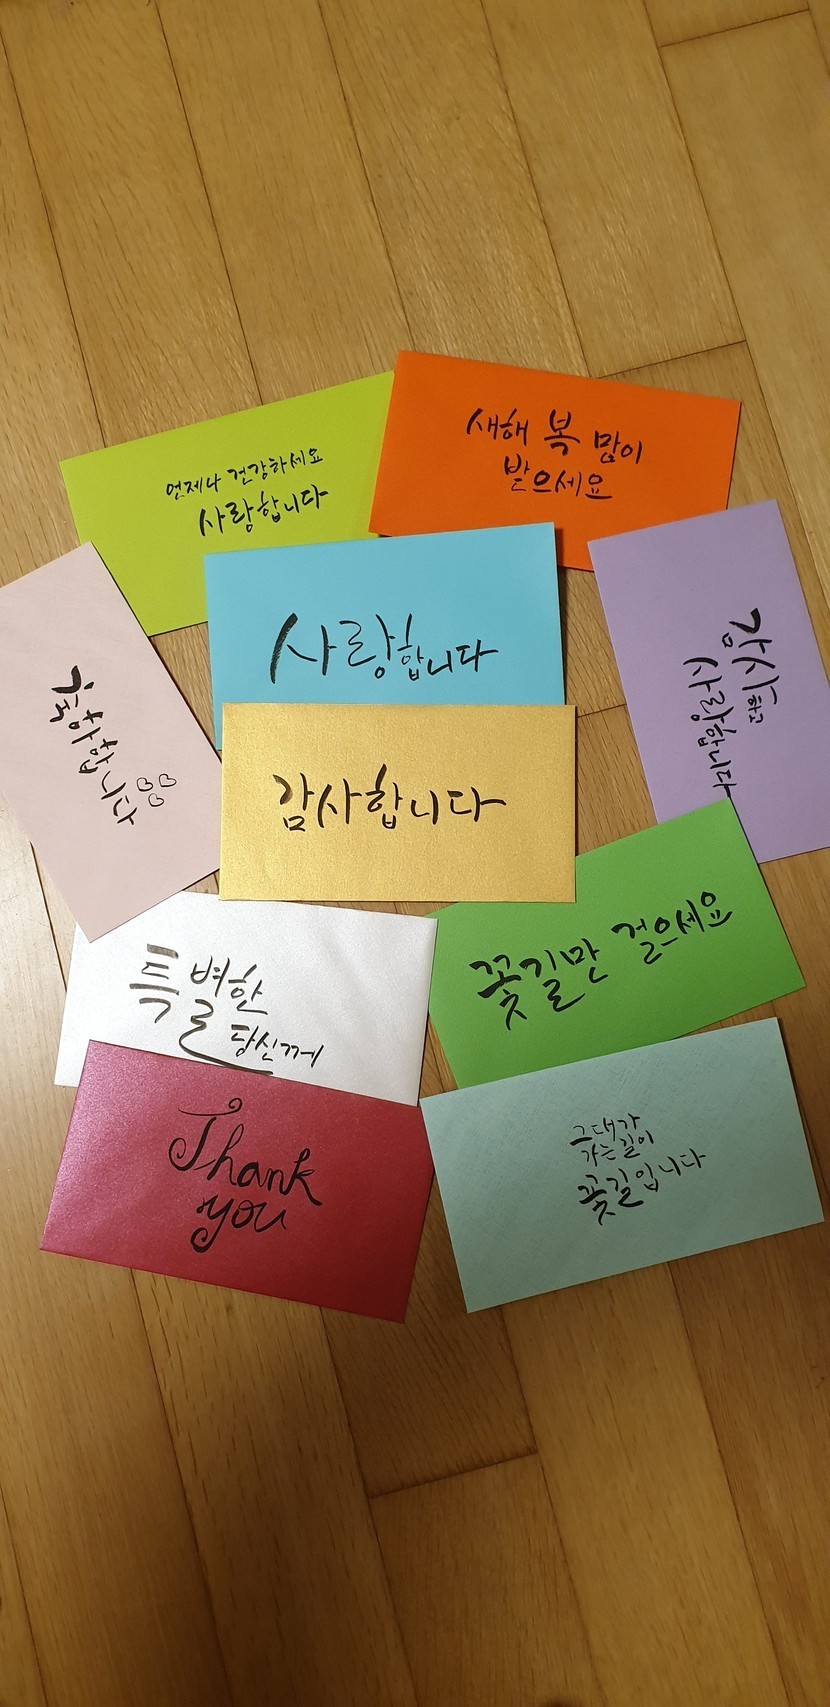 언제나 건강하세요
사랑합니다
새해 복 많이
받으세요
사랑합니다
감사하고
사랑합니다
축하합니다
감사합니다
특별한
당신께
꽃길만 걸으세요
Thank
you
그대가
가는길이
꽃길입니다